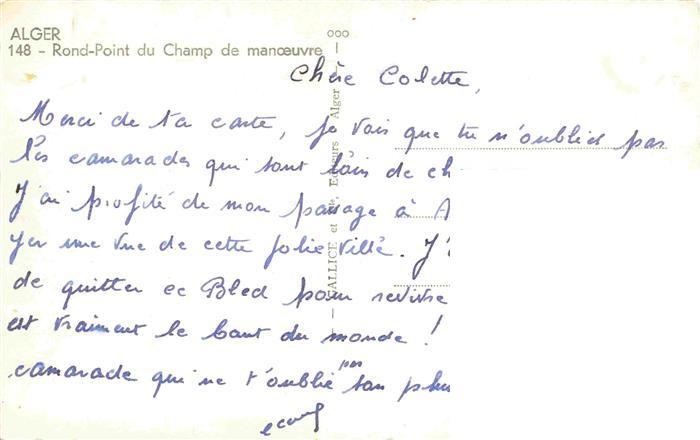 ALGER
148 - Rond-Point du Champ de manœuvre
Chère Colette,
Merci de ta carte, je vois que tu n'oublies pas
les camarades qui sont loin de ch
J'ai profité de mon passage à A
yer une vue de cette jolie ville. J'
de quitter ce Bled pour revivre
est vraiment le bout du monde !
camarade qui ne t'oublie pas son plus
GALLICE et Cie, Editeurs - Alger